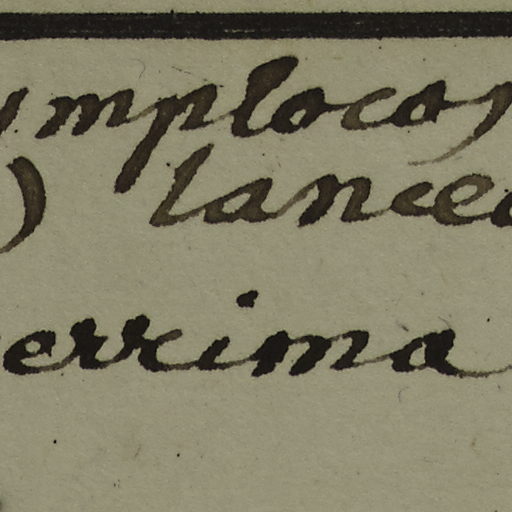 ymplocos
) lanceo
errima